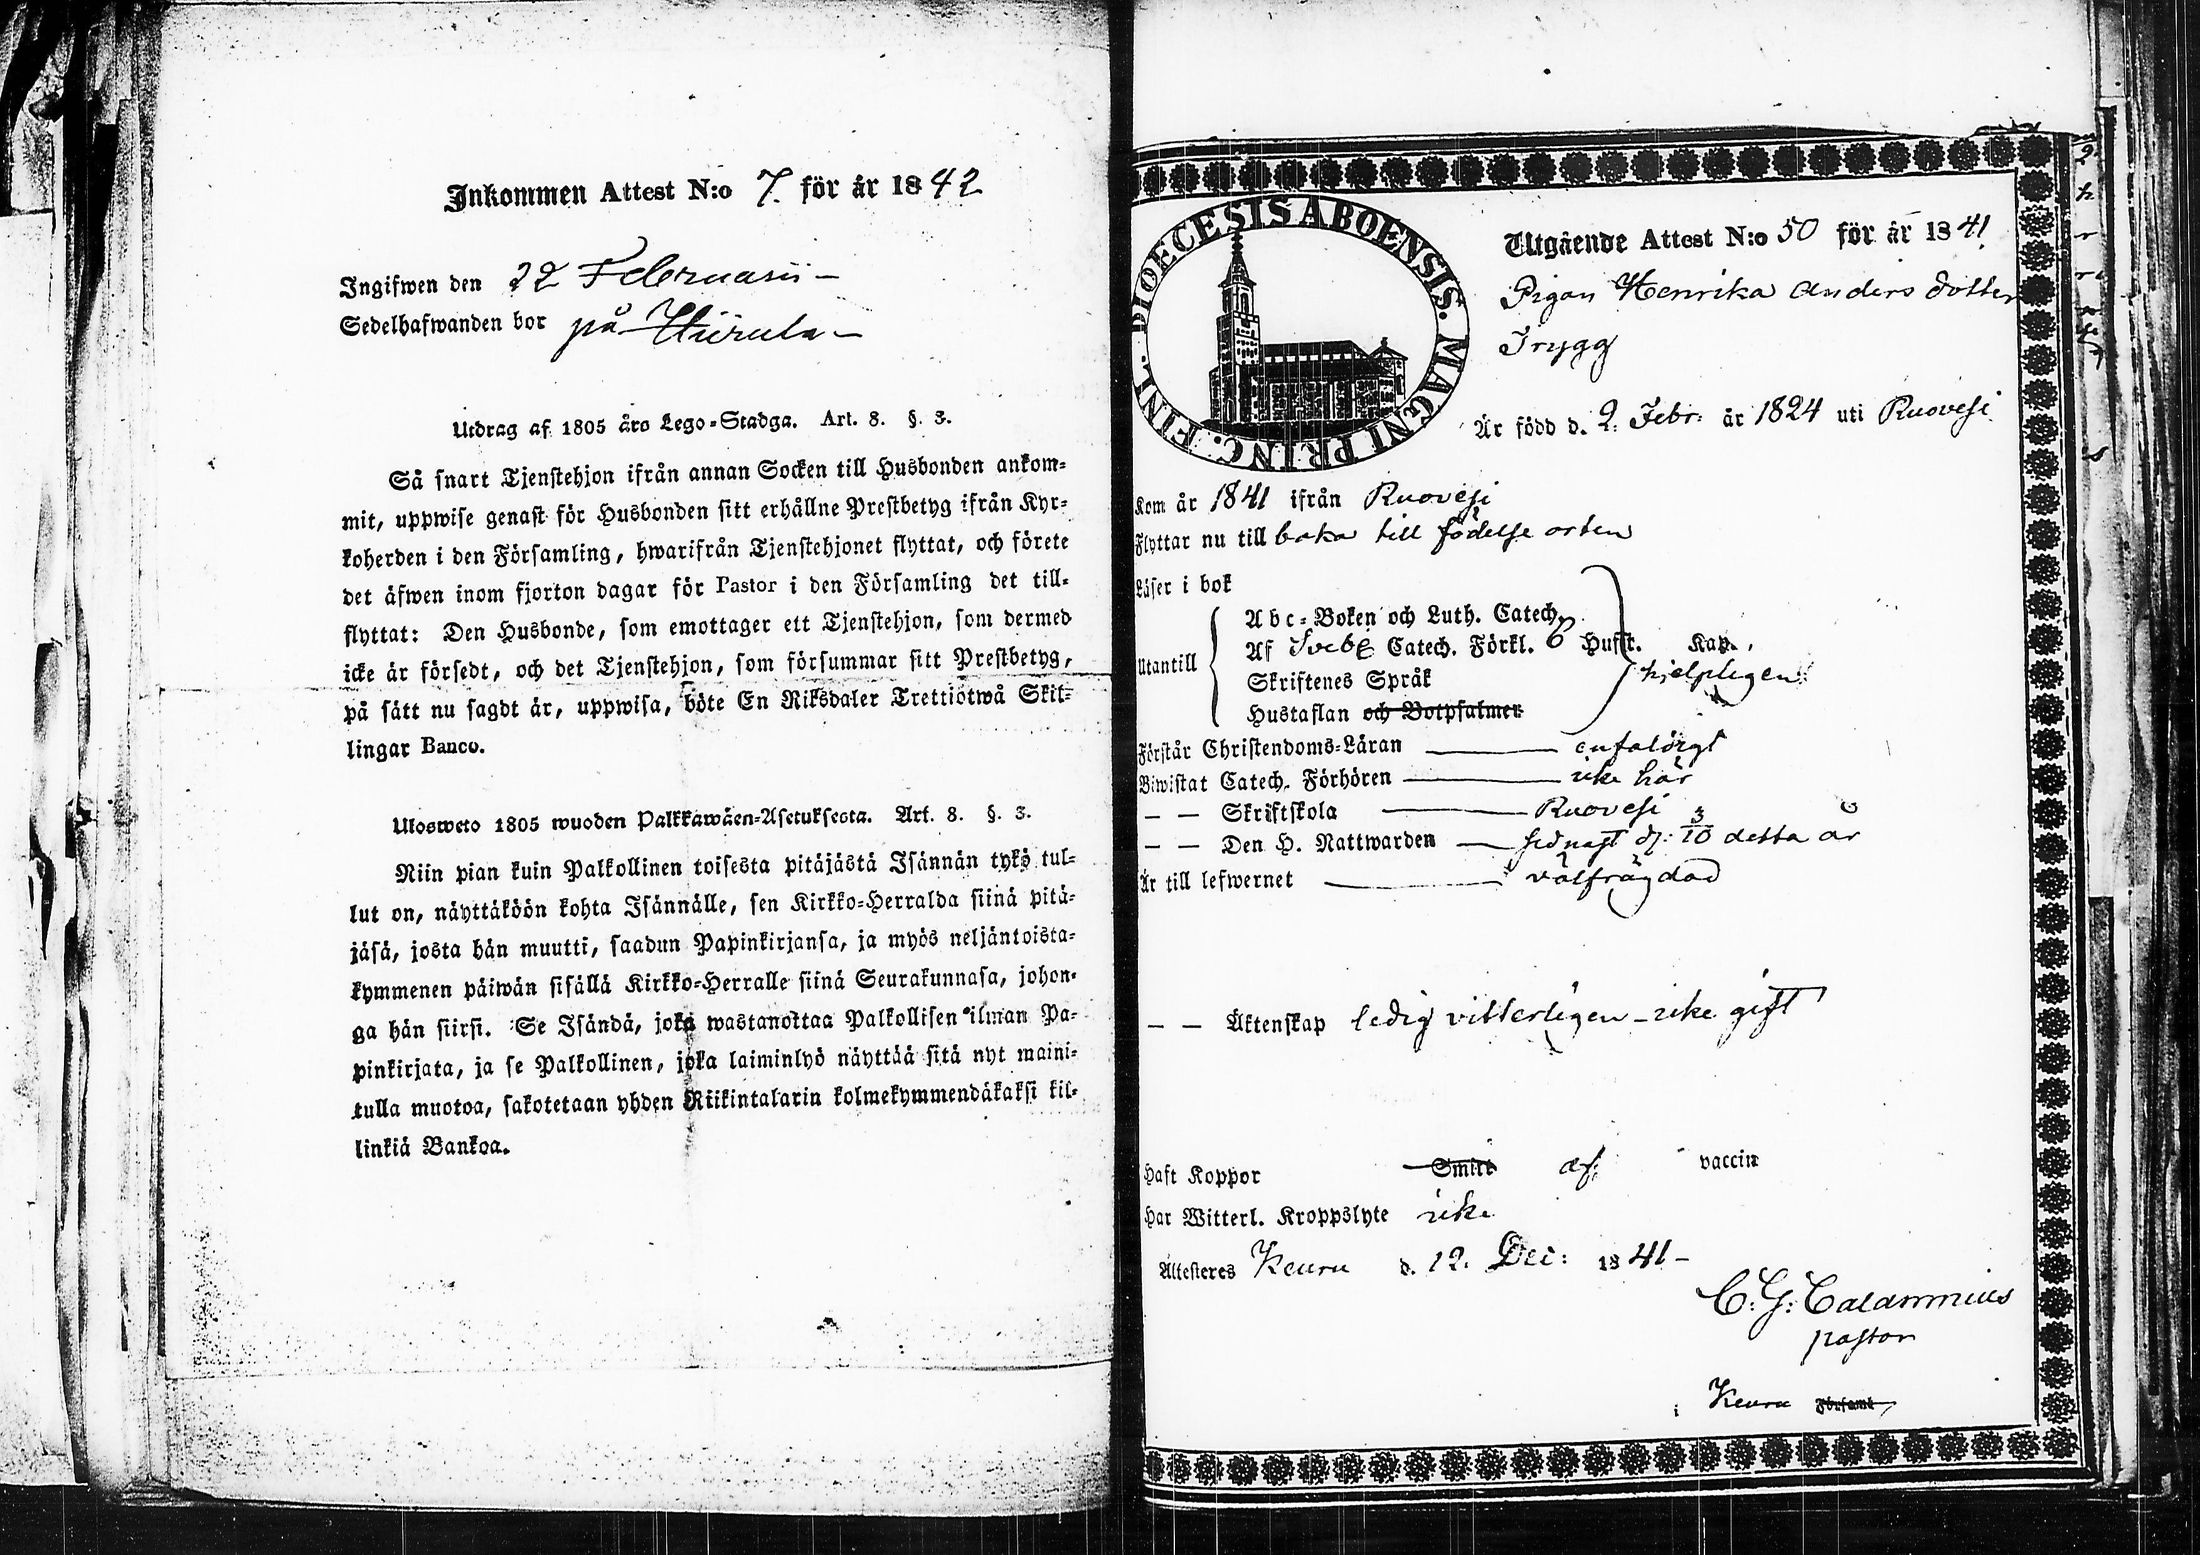 Inkommen Attest N:o 7. för år 1842
Ingifwen den 22 Februarii –
Sedelhafwanden bor på Hiirula –
Utdrag af 1805 års Lego-Stadga. Art. 8. §. 3.
Så snart Tjenstehjon ifrån annan Socken till Husbonden ankom-
mit, uppwise genast för Husbonden sitt erhållne Prestbetyg ifrån Kyr-
koherden i den Församling, hwarifrån Tjenstehjonet flyttat, och förete
det äfwen inom fjorton dagar för Pastor i den Församling det till-
flyttat: Den Husbonde, som emottager ett Tjenstehjon, som dermed
icke är försedt, och det Tjenstehjon, som försummar sitt Prestbetyg,
på sätt nu sagdt är, uppwisa, böte En Riksdaler Trettiotwå Skil-
lingar Banco.
Ulosweto 1805 wuoden Palkkawäen-Asetuksesta. Art. 8. §. 3.
Niin pian kuin Palkollinen toisesta pitäjästä Isännän tykö tul-
lut on, näyttäköön kohta Isännälle, sen Kirkko-Herralda siinä pitä-
jäsä, josta hän muutti, saadun Papinkirjansa, ja myös neljäntoista-
kymmenen päiwän sisällä Kirkko-Herralle siinä Seurakunnasa, johon-
ga hän siirsi. Se Isändä, joka wastanottaa Palkollisen ilman Pa-
pinkirjata, ja se Palkollinen, joka laiminlyö näyttää sitä nyt maini-
tulla muotoa, sakotetaan yhden Riikintalarin kolmekymmendäkaksi kil-
linkiä Bankoa.
DIOECESIS ABOENSIS. MAGNI PRINC. FINL.
Utgående Attest N:o 50 för år 1841.
Pigan Henrika Anders dotter
Trygg
Är född d. 2. Febr: år 1824 uti Ruovesi
Kom år 1841 ifrån Ruovesi
Flyttar nu till baka till födelse orten
Läser i bok
Utantill
Abc-Boken och Luth. Catech.
Af Sveb Catech. Förkl. 6 Hufst. Kap.
Skriftenes Språk
hjelpligen
Hustaflan och Botpsalmer
Förstår Christendoms-Läran enfaldigt
Biwistat Catech. Förhören icke här
– – Skriftskola Ruovesi
– – Den H. Nattwarden sednast d: 3/10 detta år
Är till lefwernet välfrägdad
– – Äktenskap ledig vitterligen – icke gift
Haft Koppor Smitt af vaccin
Har Witterl. Kroppslyte icke
Attesteres Keuru d. 12. Dec: 1841 –
C. G. Calamnius
pastor
i Keuru Församl.